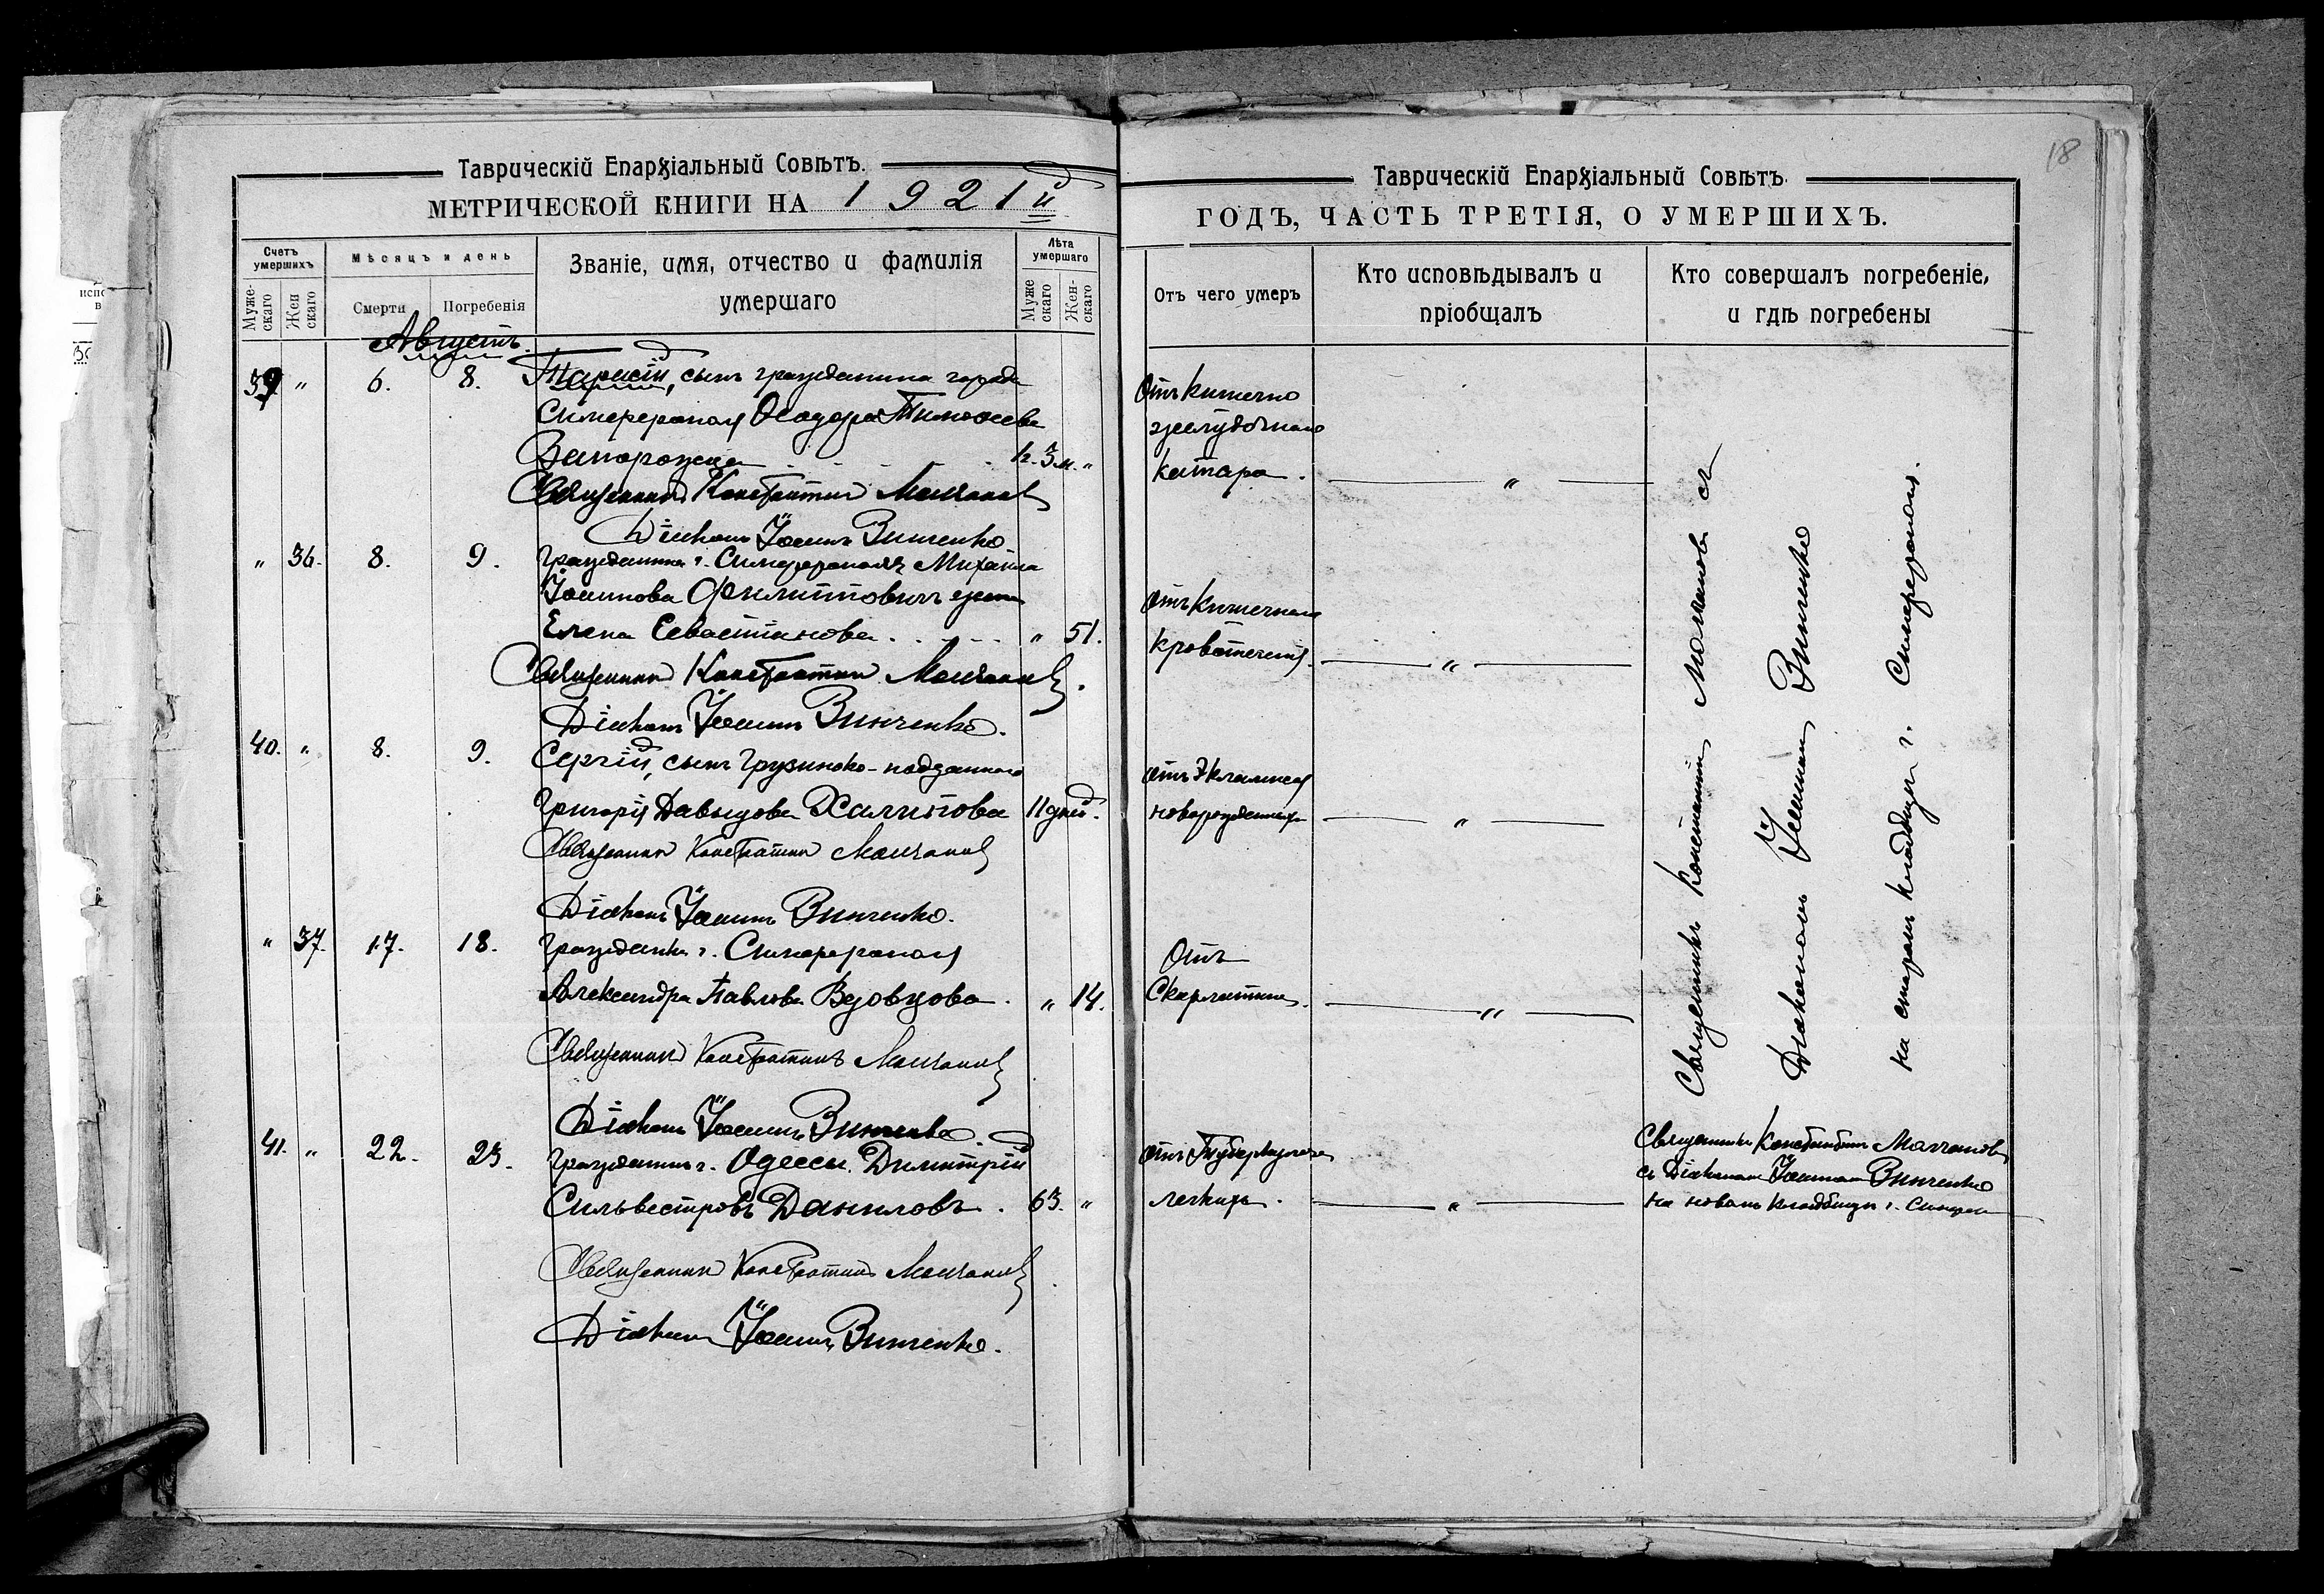 18
Таврическій Епархіальный Совѣтъ.
МЕТРИЧЕСКОЙ КНИГИ НА 1921й
Счетъ умершихъ
Мужескаго
Женскаго
Мѣсяцъ и день
Смерти
Погребенія
Званіе, имя, отчество и фамилія
умершаго
Лѣта умершаго
Мужескаго
Женскаго
Августъ.
39 " 6. 8. Тарасій, сынъ гражданина города
Симферополя Ѳеодора Тимоѳеева
Запорожца 1г. 3м. "
Священникъ Константинъ Молчановъ
Діаконъ Іоаннъ Винченко
" 36. 8. 9. Гражданина г. Симферополя Михаила
Іоаннова Филипповича жена
Елена Севастіанова " 51.
Священникъ Константинъ Молчановъ.
Діаконъ Іоаннъ Винченко.
40. " 8. 9. Сергій, сынъ Грузинско-подданнаго
Григорія Давыдова Халипова 11 дней.
Священникъ Константинъ Молчановъ
Діаконъ Іоаннъ Винченко.
" 37. 17. 18. Гражданка г. Симферополя
Александра Павлова Вдовцова. " 14.
Священникъ Константинъ Молчановъ
Діаконъ Іоаннъ Винченко.
41. " 22. 23. Гражданинъ г. Одессы Димитрій
Сильвестровъ Даниловъ. 63. "
Священникъ Константинъ Молчановъ
Діаконъ Іоаннъ Винченко.
Таврическій Епархіальный Совѣтъ.
ГОДЪ, ЧАСТЬ ТРЕТІЯ, О УМЕРШИХЪ.
Отъ чего умеръ
Кто исповѣдывалъ и
пріобщалъ
Кто совершалъ погребеніе,
и гдѣ погребены
Отъ кишечно
желудочнаго
катара. "
Отъ кишечнаго
кровотеченія. "
Отъ Эклампсіи
новорожденныхъ "
Отъ
Скарлатины. "
Священникъ Константинъ Молчановъ съ
Діакономъ Іоанномъ Винченко
на старомъ кладбищѣ г. Симферополя.
Отъ Туберкулеза
легкихъ. "
Священникъ Константинъ Молчановъ
съ Діакономъ Іоанномъ Винченко
на новомъ кладбищѣ г. Симфер